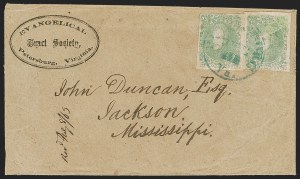 EVANGELICAL
Tract Society,
Petersburg, Virginia.
John Duncan, Esq.
Jackson,
Mississippi.